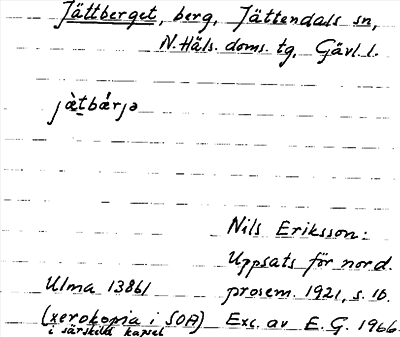 Jättberget, berg, Jättendals sn,
N. Häls. doms. tg, Gävl. l.
jètbǽrjə
Nils Eriksson:
Uppsats för nord.
Ulma 13861 prosem. 1921, s. 10.
(xerokopia i SOA) Exc. av E. G. 1966
i särskild kapsel